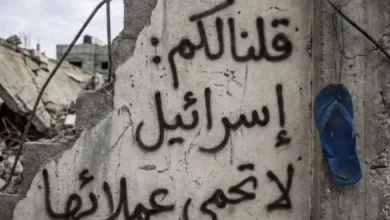 قلنالكم:
إسرائيل
لا تحمي عملائها